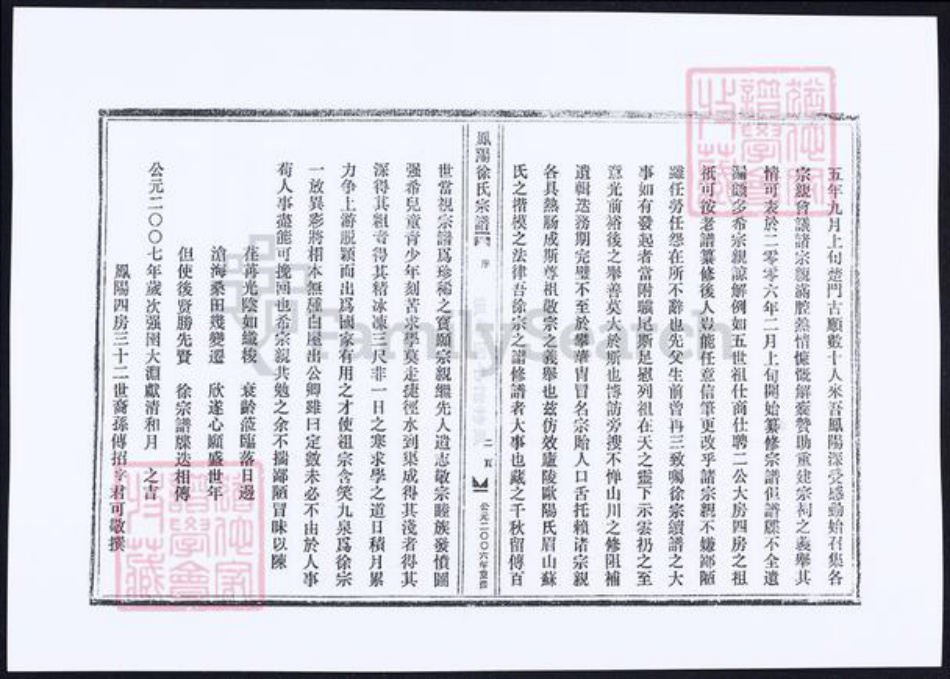 五年九月上旬楚門古順數十人來吾鳳陽深受感動始召集各
宗親會議諸宗親滿腔熱情慷慨解囊贊助重建宗祠之義舉其
情可表於二零零六年二月上旬開始纂修宗譜但譜牒不全遺
漏頗多希宗親諒解例如五世祖仕商仕聘二公大房四房之祖
祇可按老譜纂修後人豈能任意信筆更改乎諸宗親不嫌鄙陋
雖任勞任怨在所不辭也先父生前曾再三致囑徐宗續譜之大
事如有發起者當附驥尾斯足慰列祖在天之靈下示雲礽之至
意光前裕後之舉善莫大於斯也博訪旁搜不憚山川之修阻補
遺輯迭務期完璧不至於攀華胄冒名宗貽人口舌托賴诸宗親
各具熱腸成斯尊祖敬宗之義舉也兹仿效廬陵歐陽氏眉山蘇
氏之楷模之法律吾徐宗之譜修譜者大事也藏之千秋留傳百
鳳陽徐氏宗譜
序
二五
公元二〇〇六年重修
世當視宗譜爲珍稀之寶願宗親繼先人遺志敬宗睦族發憤圖
强希兒童青少年刻苦求學莫走捷徑水到渠成得其淺者得其
深得其粗者得其精冰凍三尺非一日之寒求學之道日積月累
力争上游脱穎而出爲國家有用之才使祖宗含笑九泉爲徐宗
一放異彩將相本無種白屋出公卿雖曰定數未必不由於人事
荀人事盡能可挽回也希宗親共勉之余不揣鄙陋冒昧以陳
荏苒光陰如織梭 衰齡蒞臨落日邊
滄海桑田幾變遷 欣遂心願盛世年
但使後賢勝先賢 徐宗譜牒迭相傳
公元二〇〇七年歲次强圉大淵獻清和月 之吉
鳳陽四房三十二世裔孫傳招字君可敬撰
FamilySearch